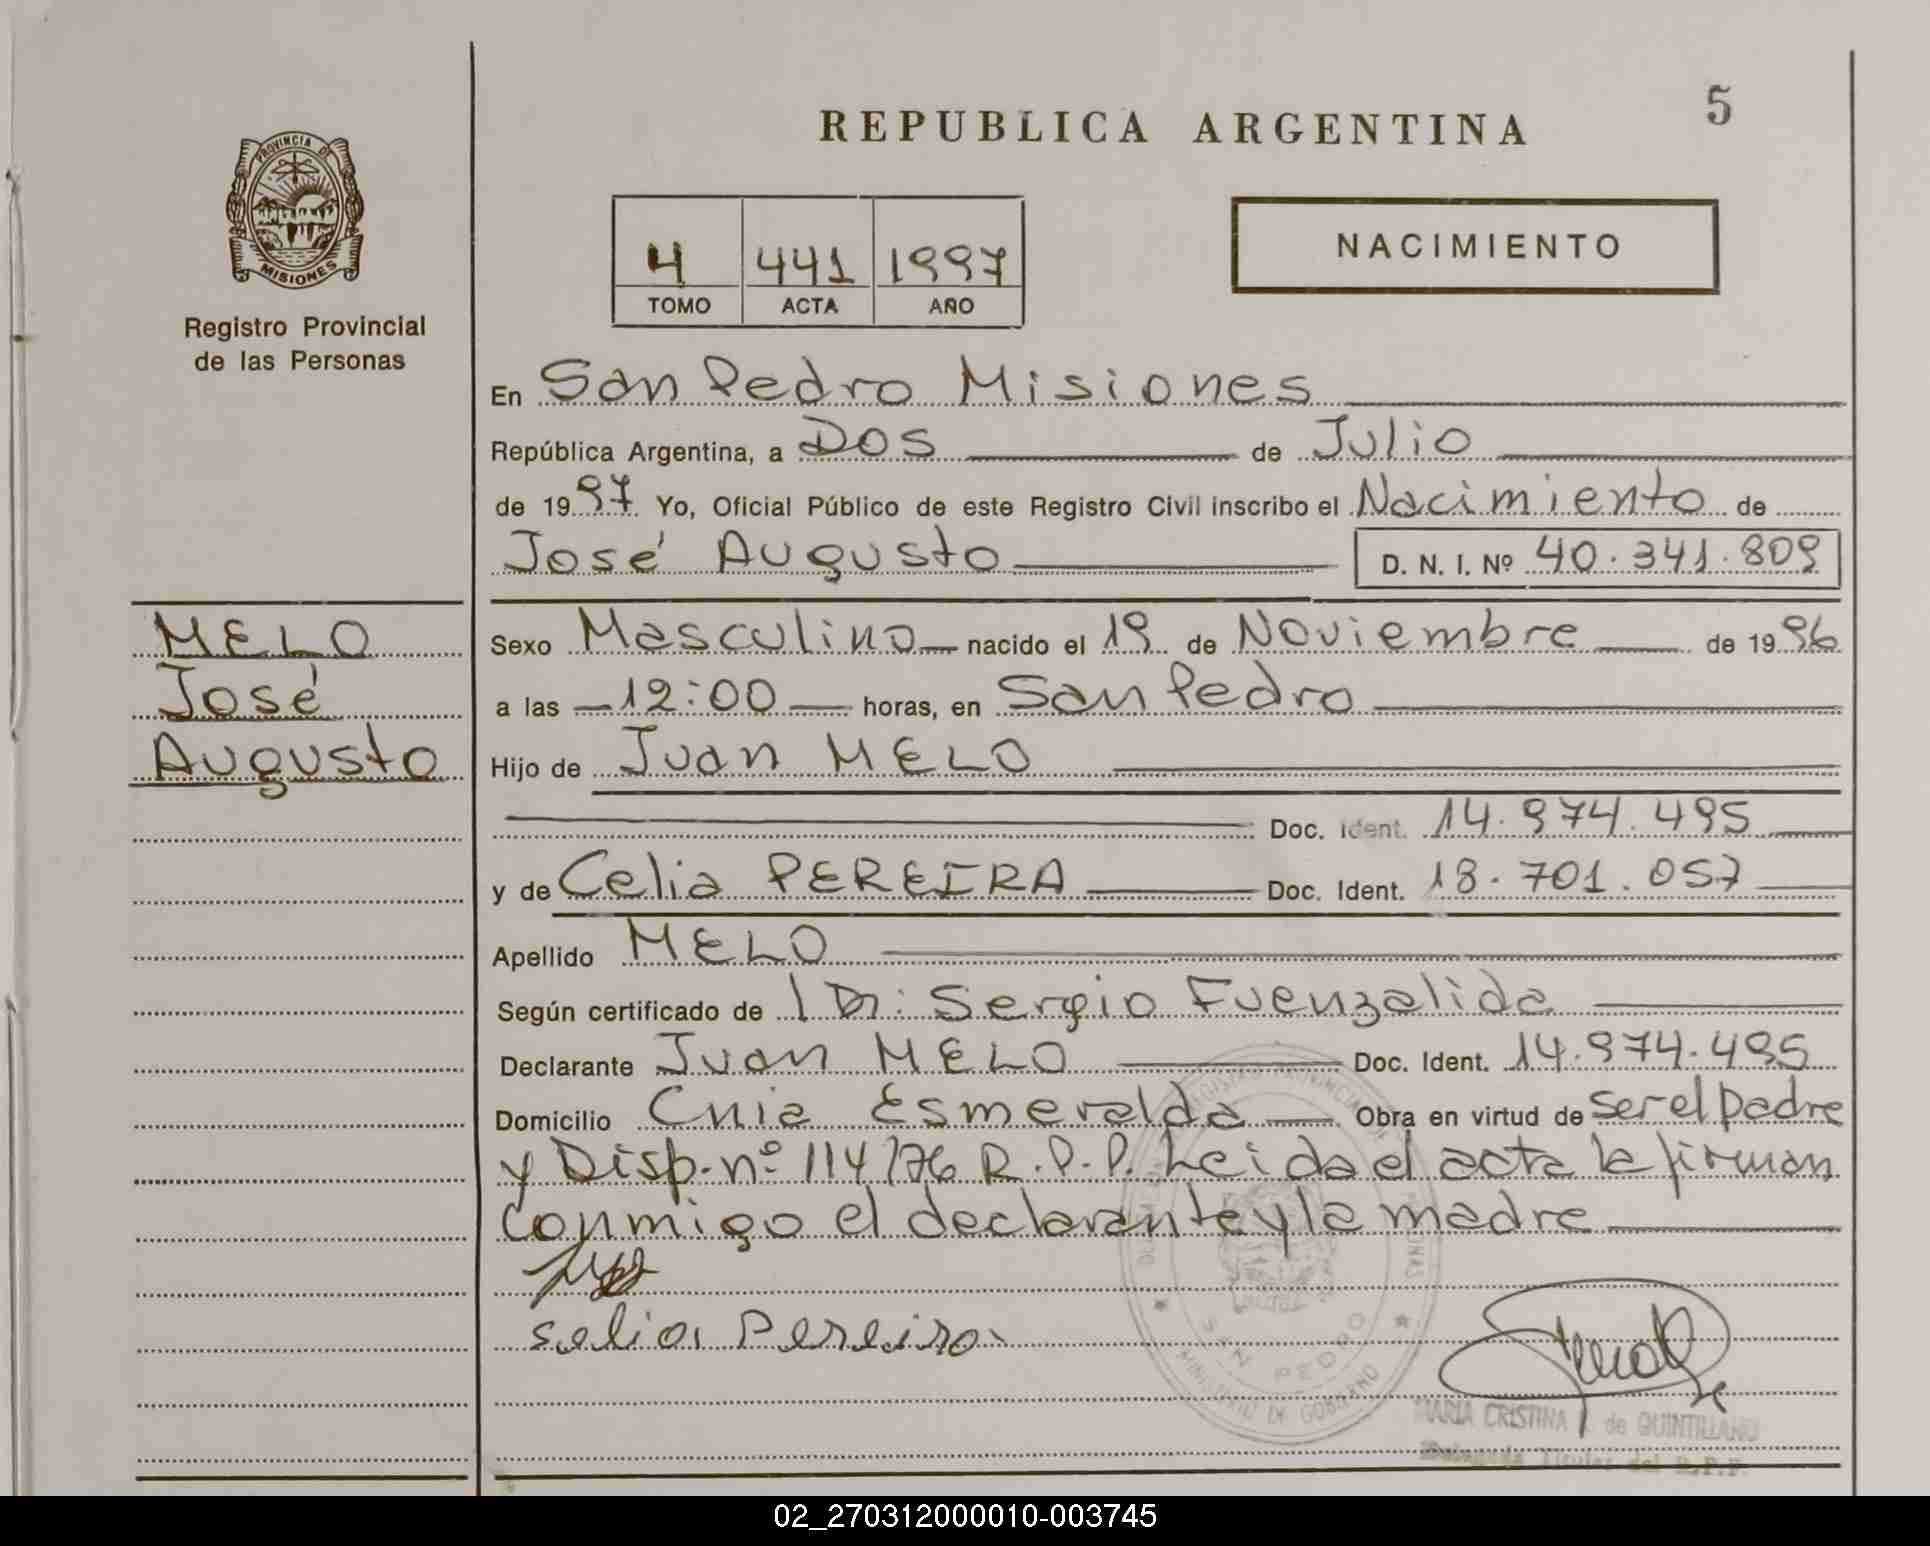 5
REPUBLICA ARGENTINA
PROVINCIA DE
MISIONES
Registro Provincial
de las Personas
4 441 1997
TOMO ACTA AÑO
NACIMIENTO
En San Pedro Misiones
República Argentina, a Dos de Julio
de 1997 Yo, Oficial Público de este Registro Civil inscribo el Nacimiento de
José Augusto D. N. I. Nº 40.341.809
MELO
José
Augusto
Sexo Masculino nacido el 19 de Noviembre de 1996
a las 12:00 horas, en San Pedro
Hijo de Juan MELO
Doc. Ident. 14.974.495
y de Celia PEREIRA Doc. Ident. 18.701.057
Apellido MELO
Según certificado de Dr: Sergio Fuenzalida
Declarante Juan MELO Doc. Ident. 14.974.495
Domicilio Cnia Esmeralda Obra en virtud de ser el padre
y Disp. nº 114/76 R.P.P. Leida el acta la firman
conmigo el declarante y la madre
selia Pereira
SAN PEDRO
MINISTERIO DE GOBIERNO
MARIA CRISTINA de QUINTILLANO
Delegada Titular del R.P.P.
02_270312000010-003745